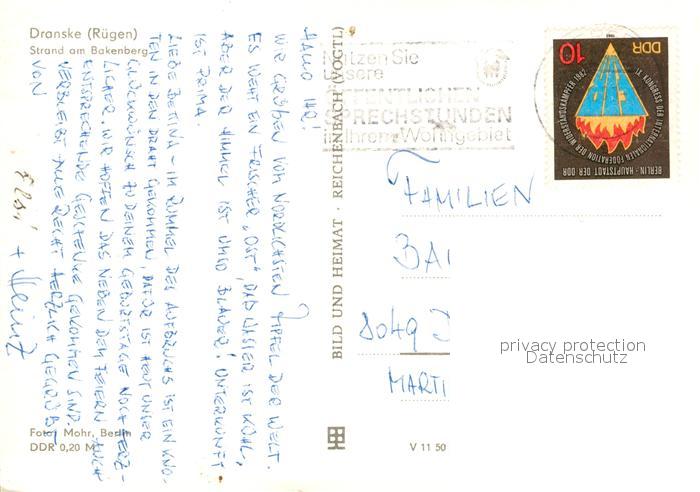 Dranske (Rügen)
Strand am Bakenberg
HALLO IHR!
WIR GRÜßEN VOM NÖRDLICHSTEN ZIPFEL DER WELT.
ES WEHT EIN FRISCHER „OST“, DAS WASSER IST KÜHL,
ABER DER HIMMEL IST UMSO BLAUER! UNTERKUNFT
IST PRIMA
LIEBE BETTINA - IM RUMMEL DES AUFBRUCHS IST EIN KNO-
TEN IN DEN DRAHT GEKOMMEN, DAFÜR IST HEUT UNSER
GLÜCKWUNSCH ZU DEINEM GEBURTSTAGE NOCH HERZ-
LICHER. WIR HOFFEN DAS NEBEN DEM FEIERN AUCH
ENTSPRECHENDE GESCHENKE GEKOMMEN SIND.
VERBLEIBT ALLE RECHT HERZLICH GEGRÜßT
VON
+ Heinz
Foto: Mohr, Berlin
DDR 0,20 M
BILD UND HEIMAT · REICHENBACH (VOGTL)
V 11 50
Nutzen Sie
unsere
ÖFFENTLICHEN
SPRECHSTUNDEN
in Ihrem Wohngebiet
DDR
10
IX. KONGRESS DER INTERNATIONALEN FÖDERATION DER WIDERSTANDSKÄMPFER 1982
BERLIN - HAUPTSTADT DER DDR
FAMILIEN
BAI
8049
MARTI
privacy protection
Datenschutz